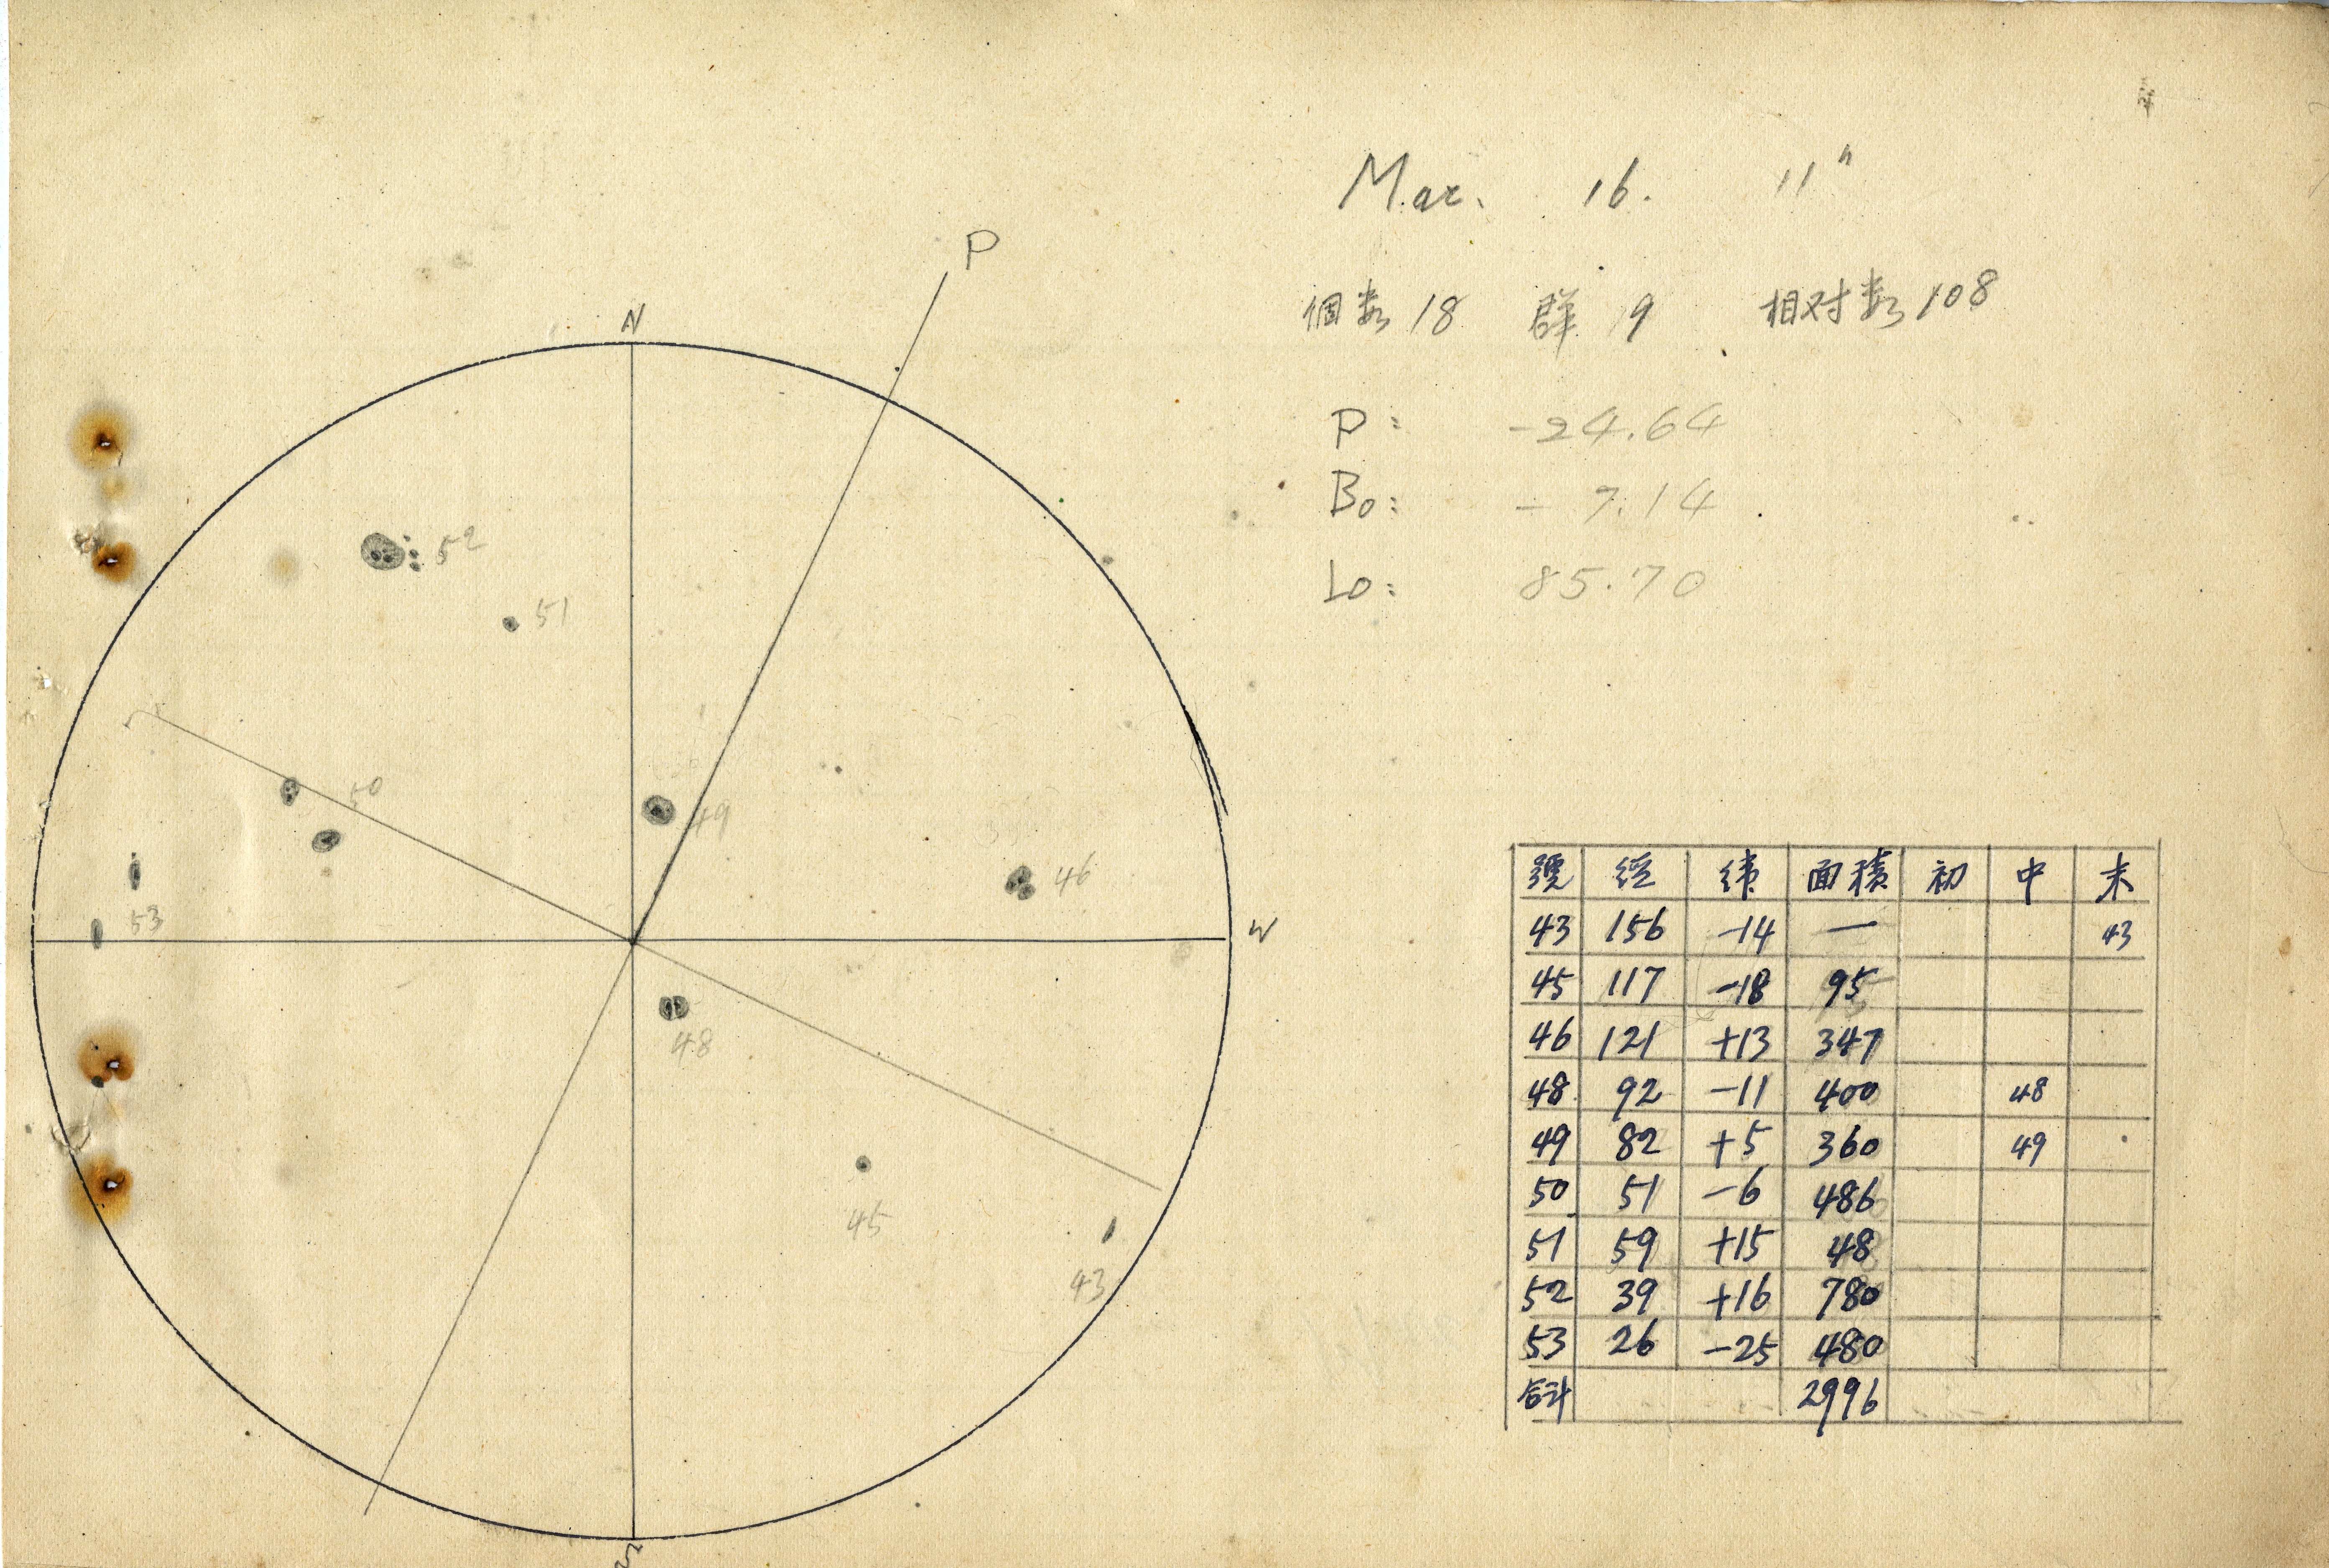 Mar. 16. 11h
個数 18 群 9 相对数 108
P: -24.64
B0: - 7.14
L0: 85.70
P
N
52
51
50
49
46
53
W
48
45
43
S
號 経 緯 面積 初 中 末
43 156 -14 — 43
45 117 -18 95
46 121 +13 347
48 92 -11 400 48
49 82 +5 360 49
50 51 -6 486
51 59 +15 48
52 39 +16 780
53 26 -25 480
合計 2996